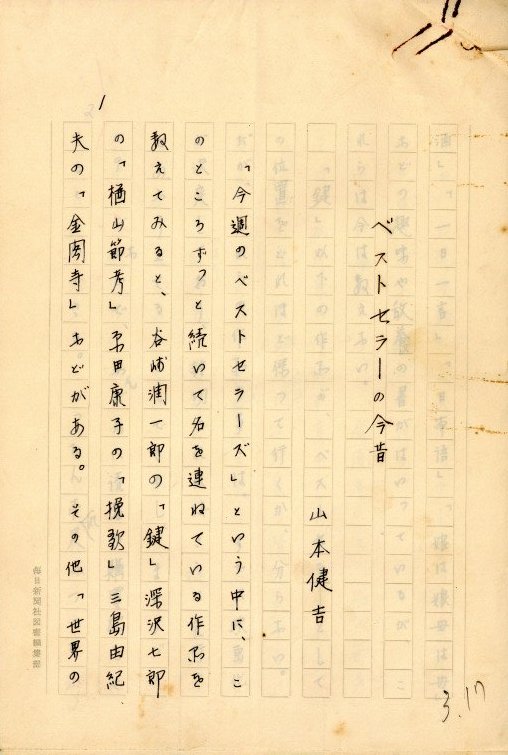 ベストセラーの今昔
山本健吉
「今週のベストセラーズ」という中に、こ
のところずっと続いて名を連ねている作品を
教えてみると、谷崎潤一郎の「鍵」深沢七郎
の「楢山節考」原田康子の「挽歌」三島由紀
夫の「金閣寺」などがある。その他「世界の
1
3.17
毎日新聞社図書編集部